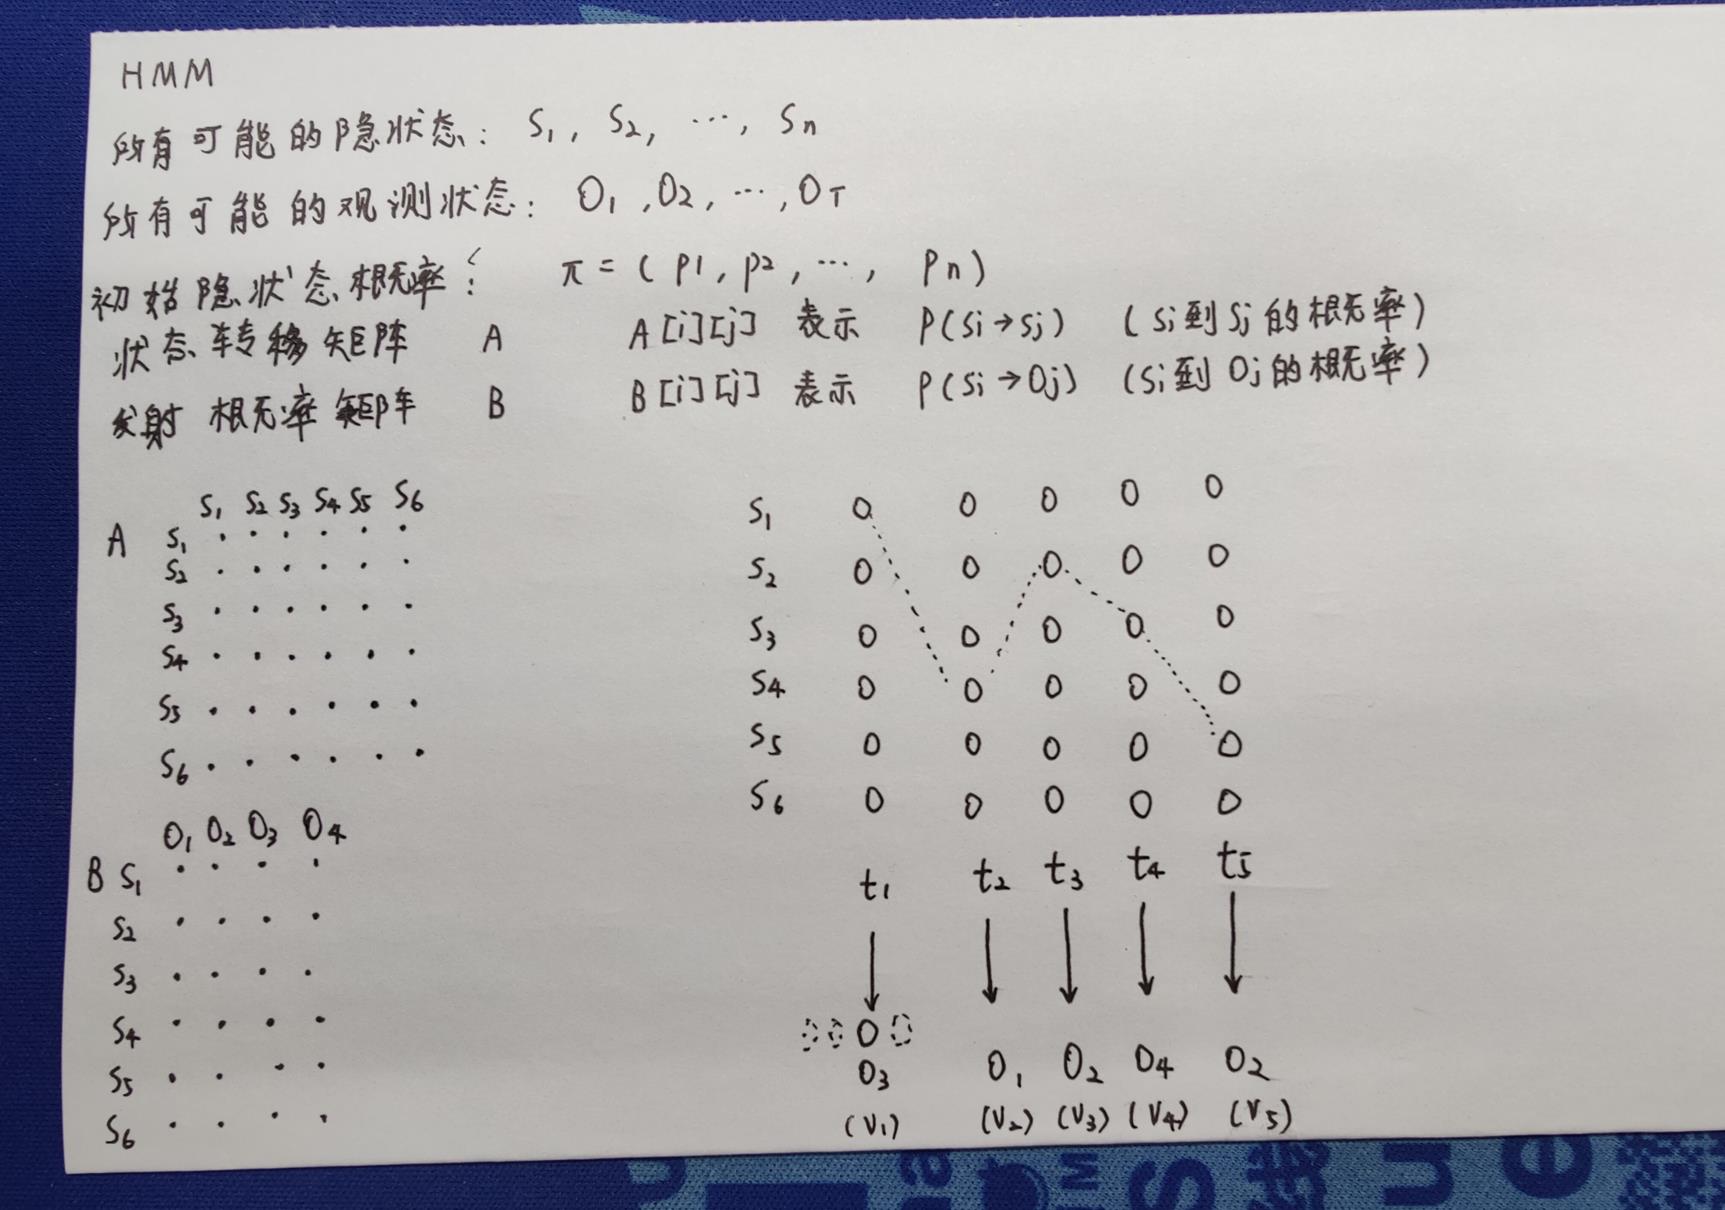 HMM
所有可能的隐状态: S1, S2, ..., Sn
所有可能的观测状态: O1, O2, ..., OT
初始隐状态概率: π = (p1, p2, ..., pn)
状态转移矩阵 A A[i][j] 表示 P(Si→Sj) (Si到Sj的概率)
发射概率矩阵 B B[i][j] 表示 P(Si→Oj) (Si到Oj的概率)
S1 S2 S3 S4 S5 S6
A S1
S2
S3
S4
S5
S6
O1 O2 O3 O4
B S1
S2
S3
S4
S5
S6
S1 O O O O O
S2 O O O O O
S3 O O O O O
S4 O O O O O
S5 O O O O O
S6 O O O O O
t1 t2 t3 t4 t5
O3 O1 O2 O4 O2
(V1) (V2) (V3) (V4) (V5)